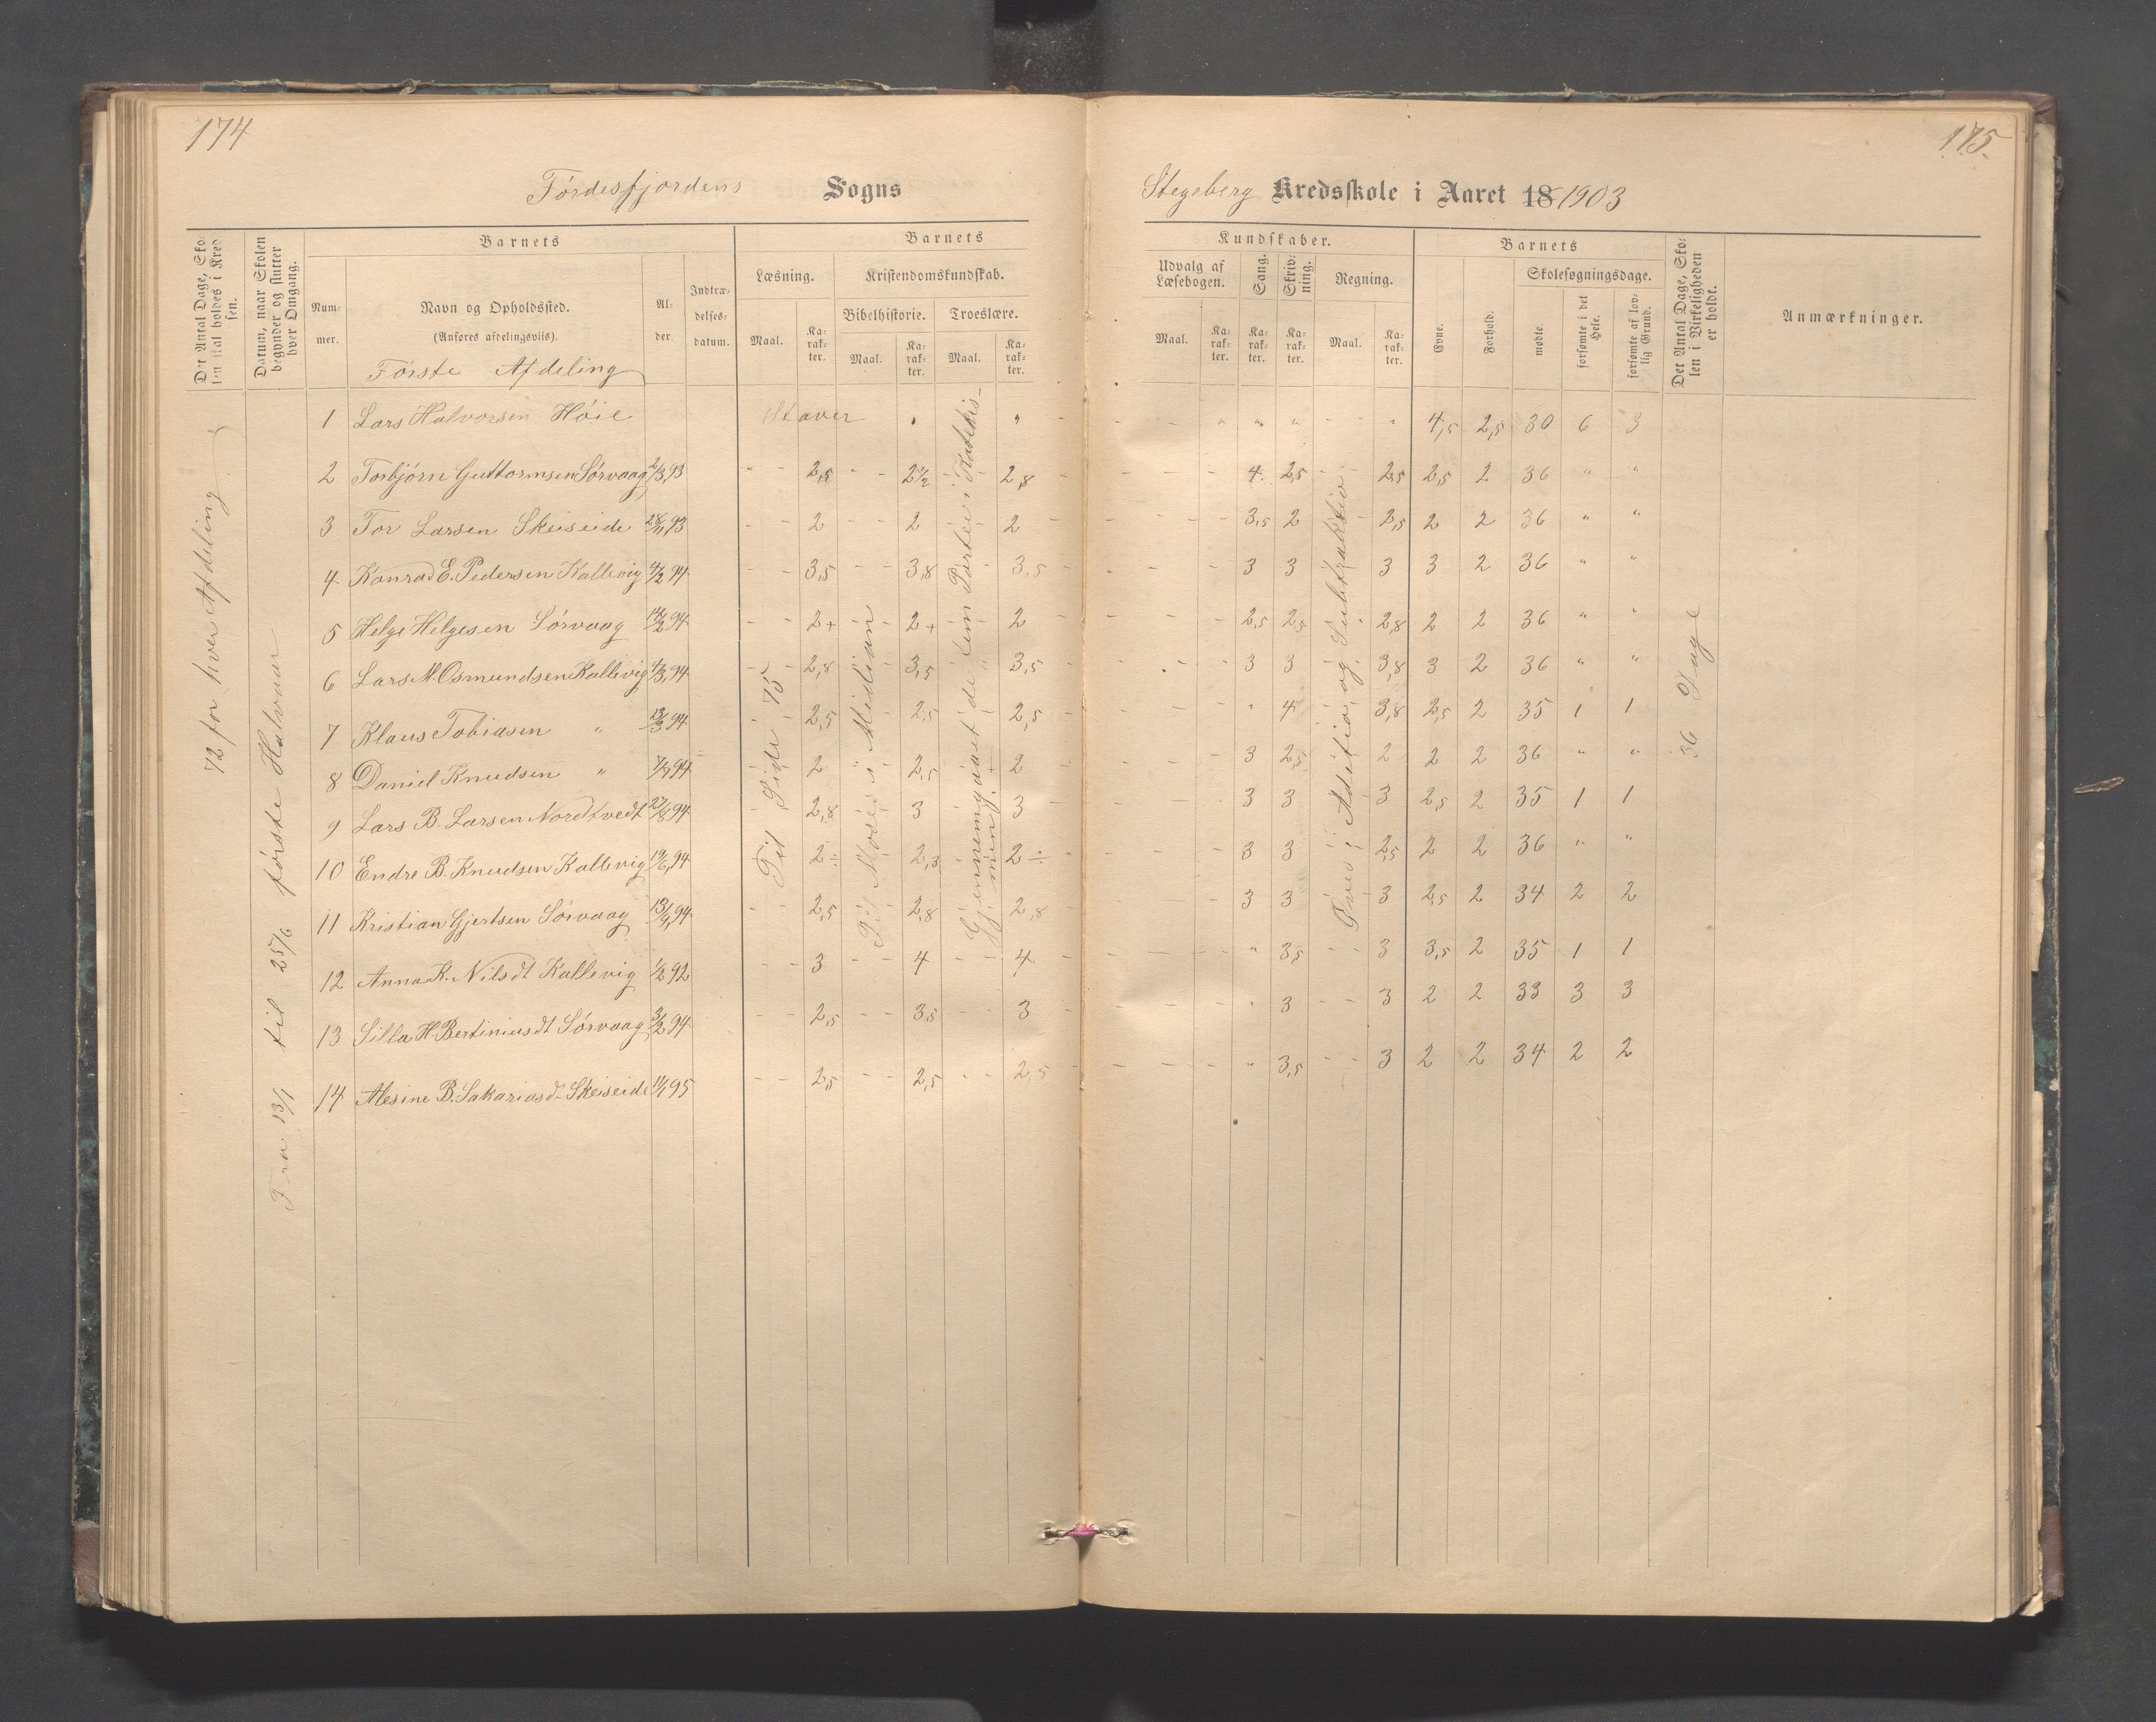 174
Fördesfjordens Sogns
Det Antal Dage, Sko-
len skal holdes i Kred
sen.
Datum, naar Skolen
begynder og slutter
hver Omgang.
Barnets
Num-
mer.
Navn og Opholdssted.
(Anføres afdelingsviis).
Første Afdeling
Al-
der.
Indtræ-
delses-
datum.
Barnets
Læsning.
Maal.
Ka-
rak-
ter.
Kristendomskundskab.
Bibelhistorie.
Maal.
Ka-
rak-
ter.
Troeslære.
Maal.
Ka-
rak-
ter.
72 for hver Afdeling
Fra 13/1 til 25/6 første Halvaar
1 Lars Halvorsen Höie Staver " "
2 Torbjörn Guttormsen Sörvaag 2/3 93 - - 2,5 - - 2 1/2 2,8
3 Tor Larsen Skeiseide 28/11 93 - - 2 - - 2 2
4 Konrad E. Pedersen Kallevig 4/2 94 - - 3,5 - - 3,8 3,5
5 Helge Helgesen Sörvaag 14/2 94 - - 2+ - - 2+ 2
6 Lars M. Osmundsen Kallevig 4/3 94 - - 2,8 3,5 3,5
7 Klaus Tobiasen " 13/3 94 - 2,5 2,5 2,5
8 Daniel Knudsen " 7/7 94 - 2 2,5 2
9 Lars B. Larsen Nordtvedt 27/8 94 - 2,8 3 3
10 Endre B. Knudsen Kallevig 19/6 94 2÷ 2,3 2÷
11 Kristian Gjertsen Sörvaag 13/9 94 - - 2,5 2,8 2,8
12 Anna K. Nilsdt Kallevig 1/2 92 - - 3 - - 4 - - 4
13 Silla H. Bertiniusdt Sörvaag 3/2 94 - - 2,5 - - 3,5 - - 3
14 Alesine B. Sakariasdt Skeiseide 11/1 95 - - 2,5 - - 2,5 - - 2,5
Til Side 75
Til Moses i Midian
Gjennemgaaet de fem Parter i Katekis-
men
175.
Stegeberg Kredsskole i Aaret 18 1903
Kundskaber.
Udvalg af
Læsebogen.
Maal.
Ka-
rak-
ter.
Sang.
Ka-
rak-
ter.
Skriv-
ning.
Ka-
rak-
ter.
Regning.
Maal.
Ka-
rak-
ter.
Barnets
Evne.
Forhold.
Skolesøgningsdage.
mødte.
forsømte i det
Hele.
forsømte af lov-
lig Grund.
Det Antal Dage, Sko-
len i Virkeligheden
er holdt.
Anmærkninger.
" " " - - " 4,5 2,5 30 6 3
4 2,5 - - 2,5 2,5 2 36 " "
3,5 2 2,5 2 2 36 " "
3 3 3 3 2 36 " "
2,5 2,5 2,8 2 2 36 " "
3 3 3,8 3 2 36 " "
" 4 3,8 2,5 2 35 1 1
3 2,5 2 2 2 36 " "
3 3 3 2,5 2 35 1 1
3 3 2,5 2 2 36 " "
3 3 3 2,5 2 34 2 2
" 3,5 - - 3 3,5 2 35 1 1
" 3 - - 3 2 2 33 3 3
" 3,5 - - 3 2 2 34 2 2
Övet Aditio og Subtraktio
36 Dage